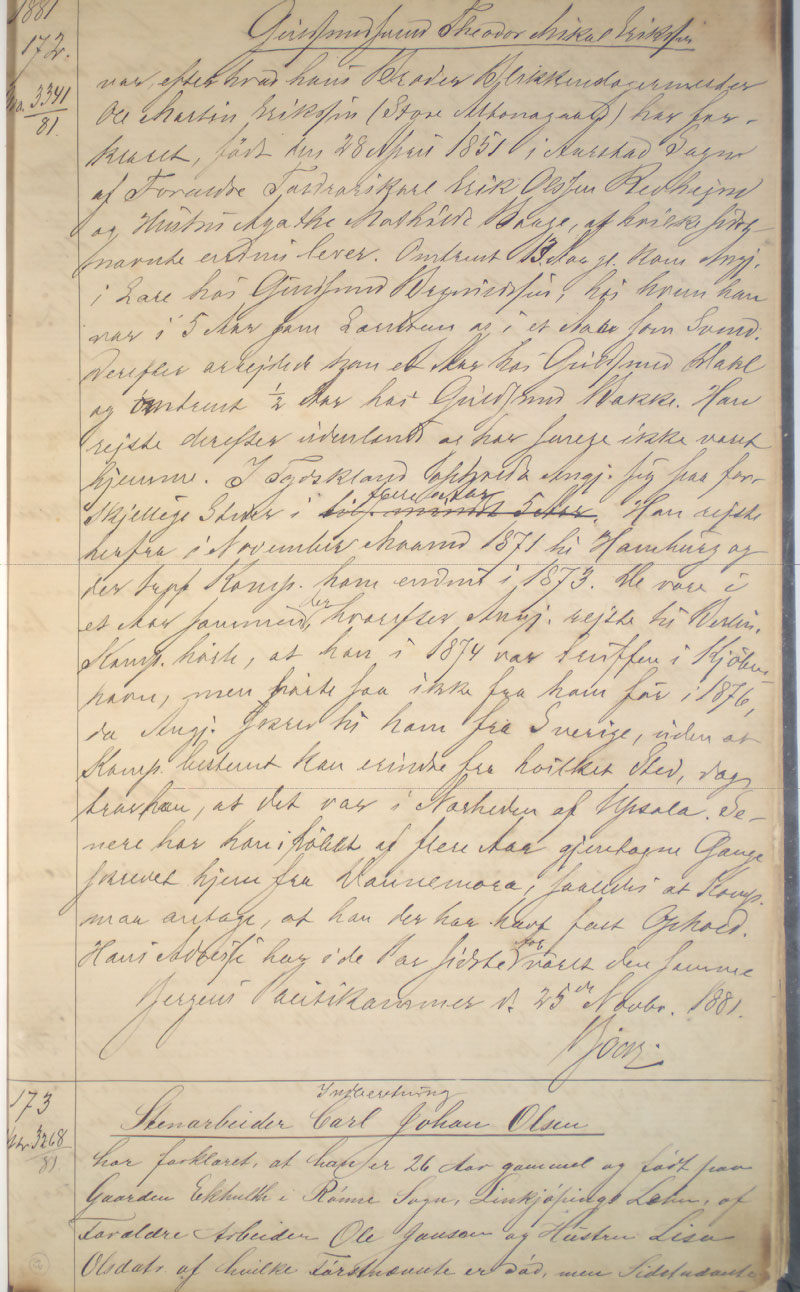 1881
172.
Guldsmedsvend Theodor Mikal Eriksen
No. 3341
81.
var, efter hvad hans Broder Blikkenslagermester
Ole Martin Eriksen (Store Altonagaard) har for-
klaret, født den 28 April 1851 i Aarstad Sogn
af Forældre Fordrarikarl Erik Olsen
og Hustru Agathe Mathilde Vaage, af hvilke sidst-
nævnte endnu lever. Omtrent 13 Aar gl. kom Angj.
i Lære hos Guldsmed Brynildsen, hos hvem han
var i 5 Aar som Lærdreng og i et Aar som Svend.
Derefter arbeidede han et Aar hos Guldsmed Dahl
og omtrent ½ Aar hos Guldsmed Bakke. Han
rejste derefter udenlands og har senere ikke været
hjemme. I Tydskland opholdt Angj. sig paa for-
flere Aar
skjellige Steder i till mindst 5 Aar. Han rejste
herfra i November Maaned 1871 til Hamburg og
der traf Komp. ham endnu i 1873. De vare i
der
et Aar sammen, hvorefter Angj. rejste til Berlin.
Komp. hørte, at han i 1874 var truffen i Kjøben-
havn, men hørte saa ikke fra ham før i 1876,
da Angj. skrev til ham fra Sverige, uden at
Komp. bestemt kan erindre fra hvilket Sted, dog
tror han, at det var i Nærheden af Upsala. Se-
nere har han i Løbet af flere Aar gjentagne Gange
skrevet hjem fra Dannemora, saaledes at Komp.
maa antage, at han der har havt fast Ophold.
Hans Adresse har i de Par sidste Aar været den samme
Bergens Politikammer d. 25de Novbr. 1881.
173
Indberetning
Stenarbeider Carl Johan Olsen
No. 3268
81.
har forklaret, at han er 26 Aar gammel og født paa
Gaarden Ekhulth i Rønne Sogn, Linkjøpings Lehn, af
Forældre Arbeider Ole Jansen og Hustru Lisa
Olsdatr af hvilke Førstnævnte er død, men Sidstnævnte